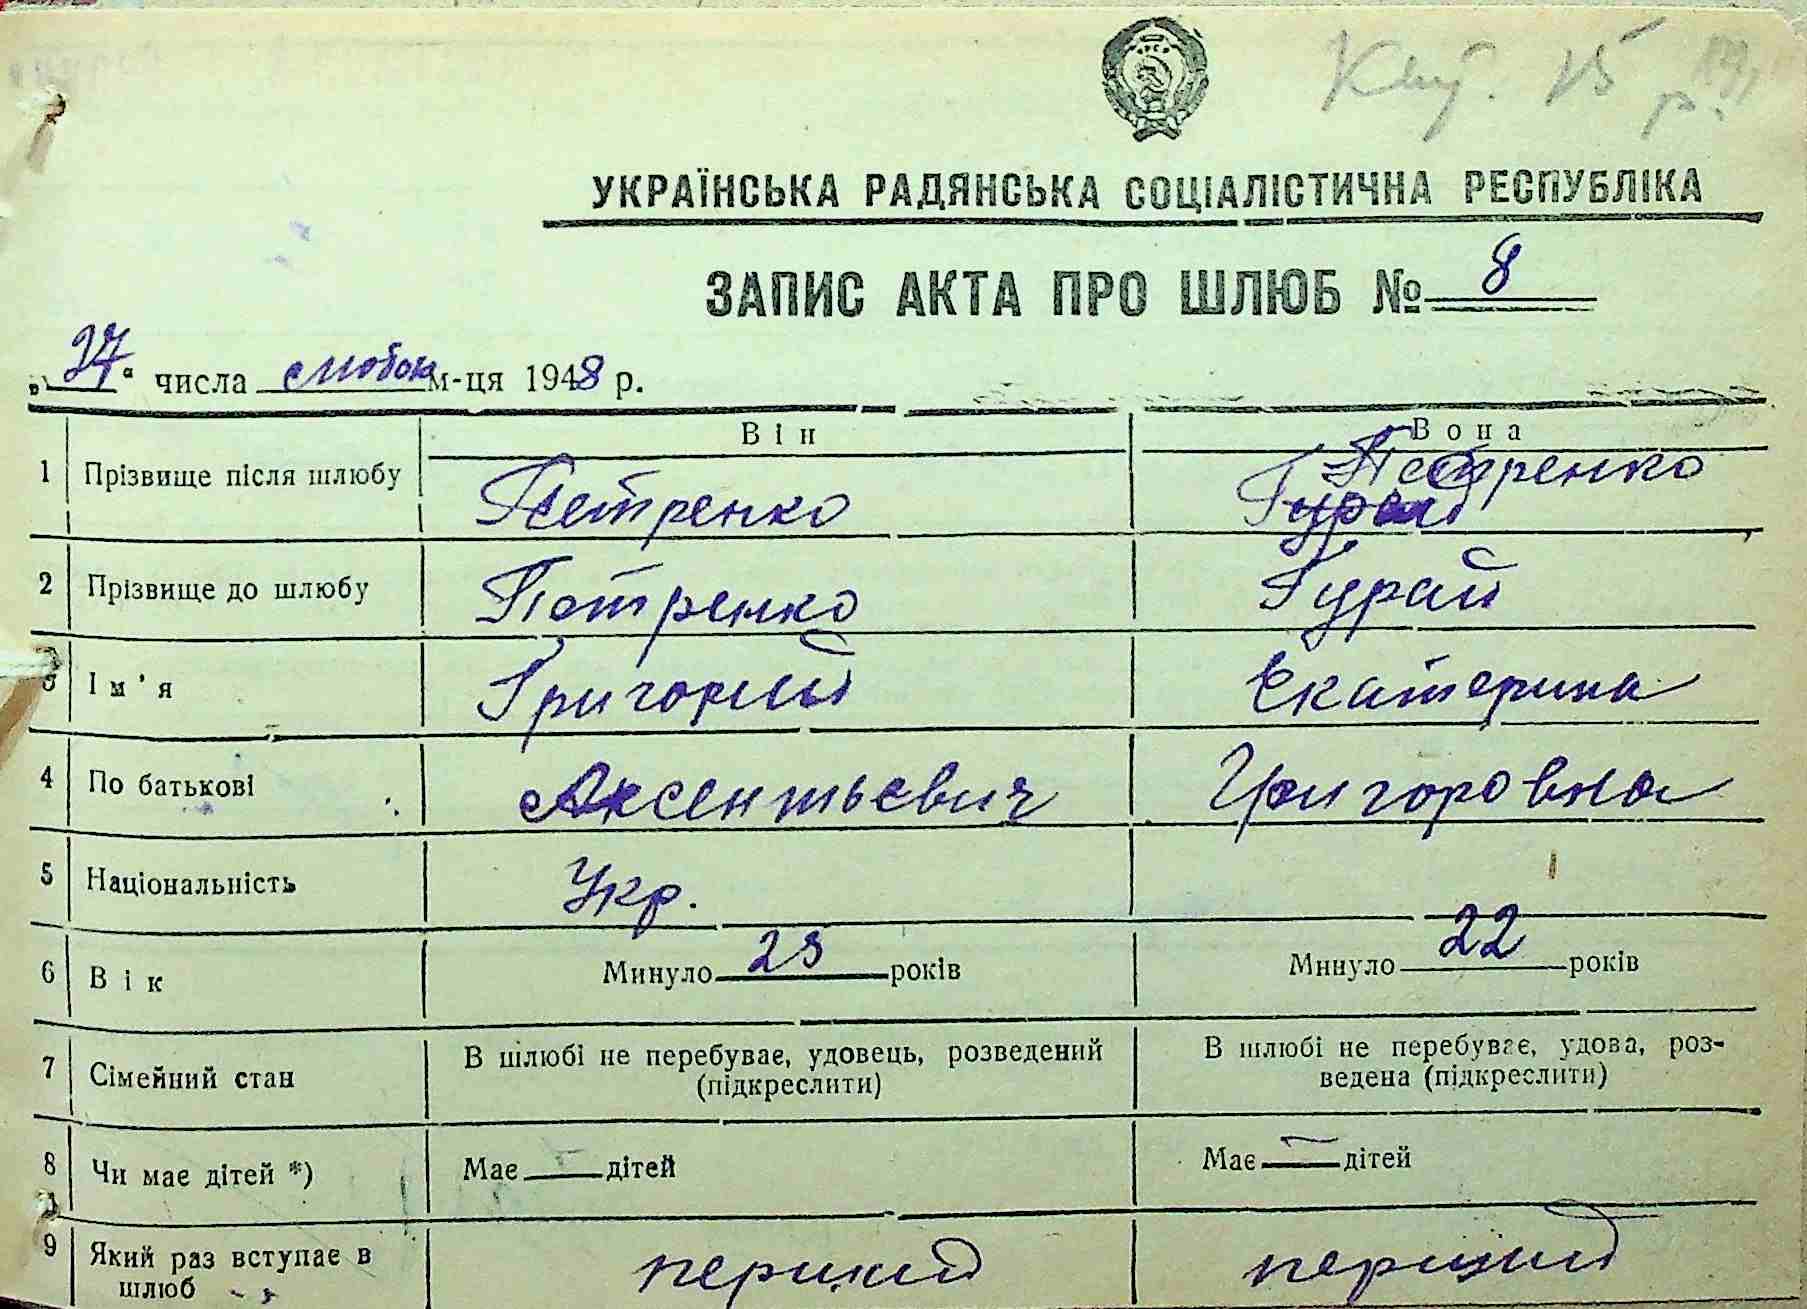 УКРАЇНСЬКА РАДЯНСЬКА СОЦІАЛІСТИЧНА РЕСПУБЛІКА
ЗАПИС АКТА ПРО ШЛЮБ № 8
„27“ числа м-ця 1948 р.
Він Вона
1 Прізвище після шлюбу Петренко Гурай Петренко
2 Прізвище до шлюбу Петренко Гурай
3 Ім'я Григорий Екатерина
4 По батькові Аксентьевич Григоровна
5 Національність Укр.
6 Вік Минуло 23 років Минуло 22 років
7 Сімейний стан В шлюбі не перебуває, удовець, розведений (підкреслити) В шлюбі не перебуває, удова, роз-
ведена (підкреслити)
8 Чи має дітей *) Має — дітей Має — дітей
9 Який раз вступає в шлюб перший перший